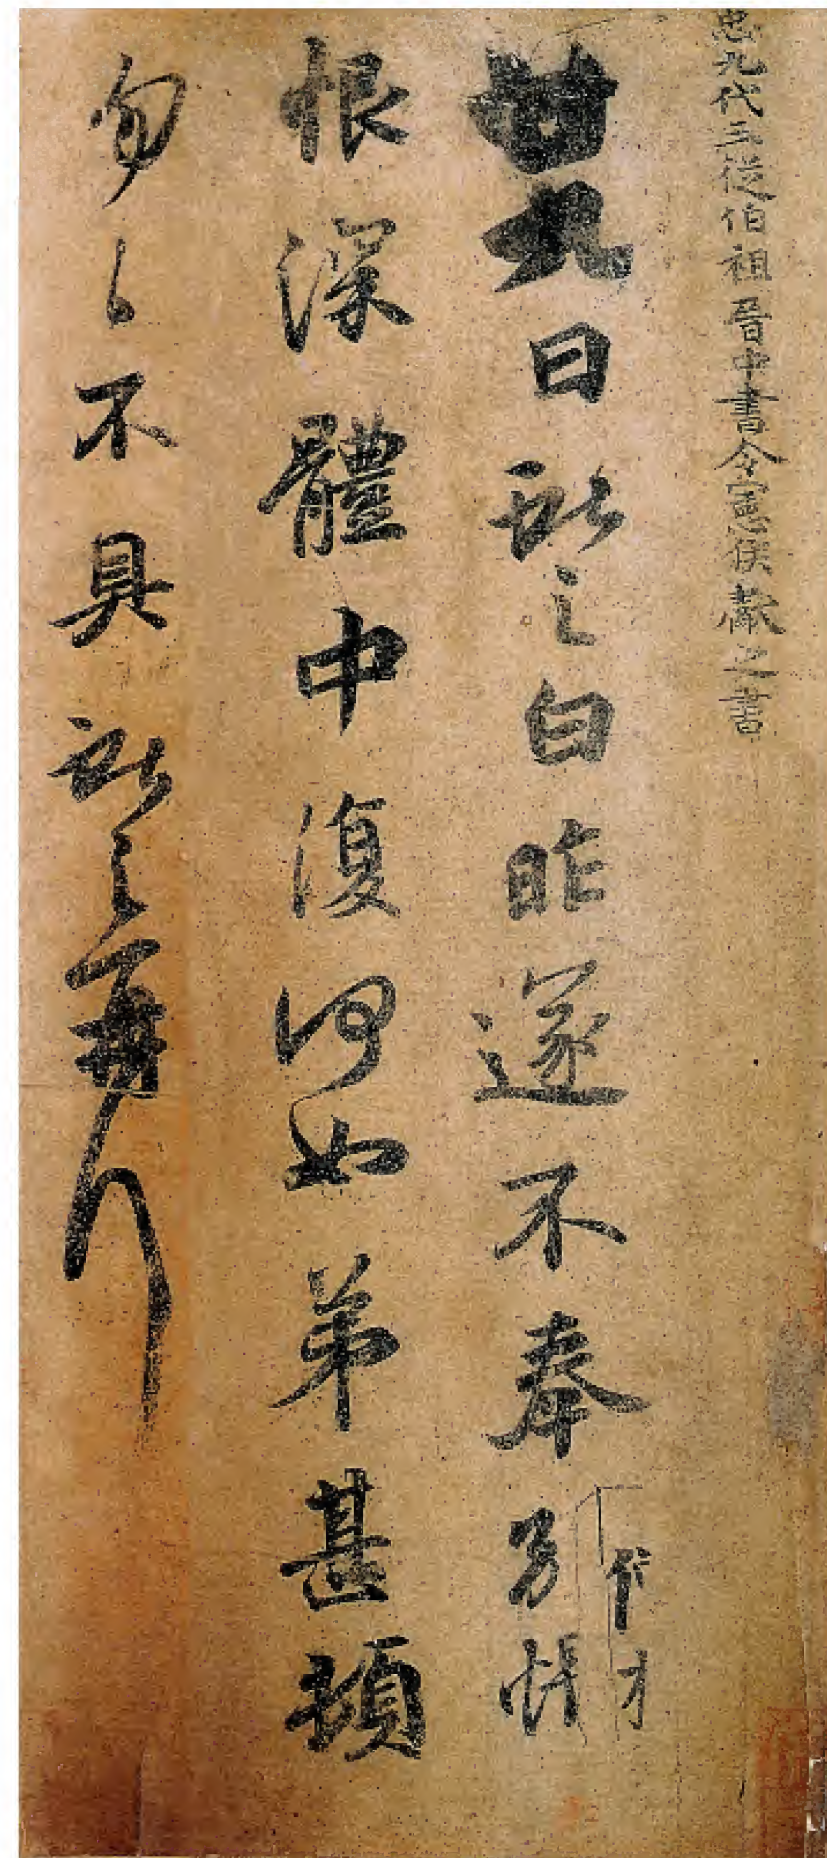 臣九代三從伯祖晉中書令憲侯獻之書
廿九日獻之白昨遂不奉別悵
恨深體中復何如弟甚頓
匆匆不具獻之再拜